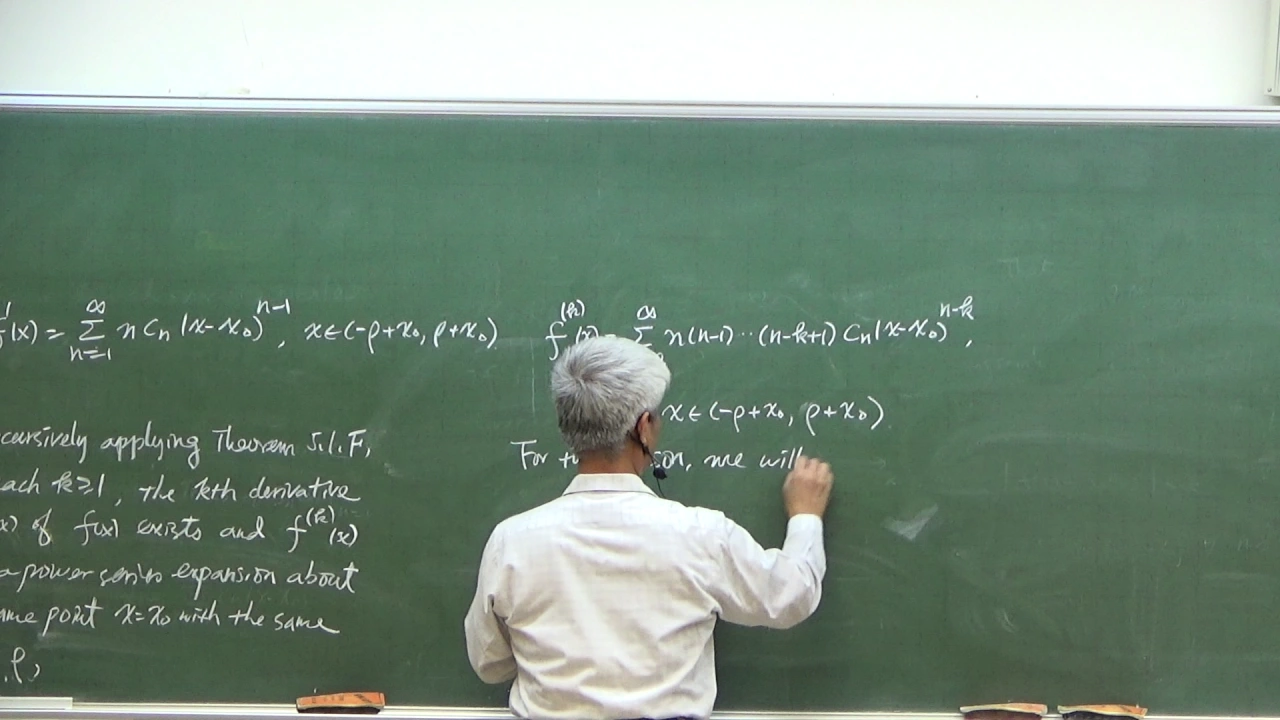 f'(x) = ∑_{n=1}^{∞} n c_n (x-x_0)^{n-1}, x∈(-ρ+x_0, ρ+x_0)
cursively applying Theorem 5.1.F,
each k≥1, the kth derivative
x) of f(x) exists and f^{(k)}(x)
a power series expansion about
ame point x=x_0 with the same
f^{(k)}(x) = ∑^{∞} n(n-1)⋯(n-k+1) c_n (x-x_0)^{n-k},
x∈(-ρ+x_0, ρ+x_0)
For we will